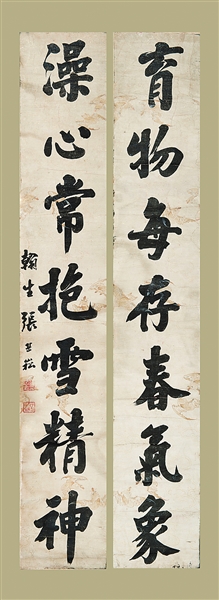 育物每存春氣象
澡心常抱雪精神
翰生張